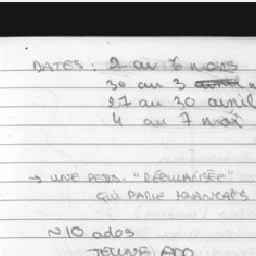 DATES : 2 au 6 mars
30 au 3
27 au 30 avril
4 au 7 mai
→ UNE PERS. "
QUI PARLE FRANÇAIS
~10 ados
JEUNE ADO